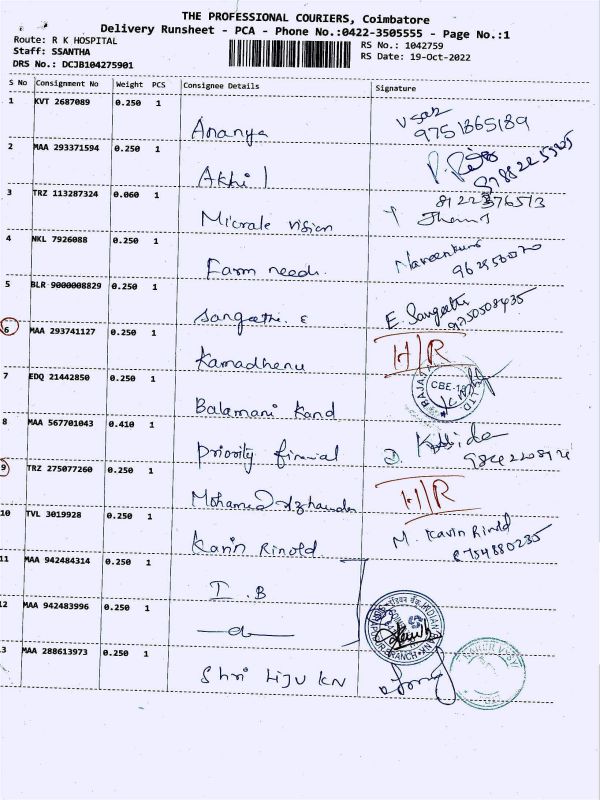 THE PROFESSIONAL COURIERS, Coimbatore
Delivery Runsheet - PCA - Phone No.:0422-3505555 - Page No.:1
Route: R K HOSPITAL
Staff: SSANTHA
DRS No.: DCJB104275901
RS No.: 1042759
RS Date: 19-Oct-2022
S No Consignment No Weight PCS Consignee Details Signature
1 KVT 2687089 0.250 1 Ananya
9751865189
2 MAA 293371594 0.250 1 Akhil
3 TRZ 113287324 0.060 1 Micrale vision
4 NKL 7926088 0.250 1 Farm needs
Naveenkumar
5 BLR 9000008829 0.250 1 Sangeetha. E
E. Sangeetha
9250508435
6 MAA 293741127 0.250 1 Kamadhenu H/R
7 EDQ 21442850 0.250 1 Balamani Kand
CBE-18
8 MAA 567701043 0.410 1 Priority financial
9 TRZ 275077260 0.250 1 Mohamed H/R
10 TVL 3019928 0.250 1 Kavin Rinold
M. Kavin Rinold
8754880235
11 MAA 942484314 0.250 1 I.B
12 MAA 942483996 0.250 1 —do—
BRANCH
3 MAA 288613973 0.250 1 Shri Liju KN